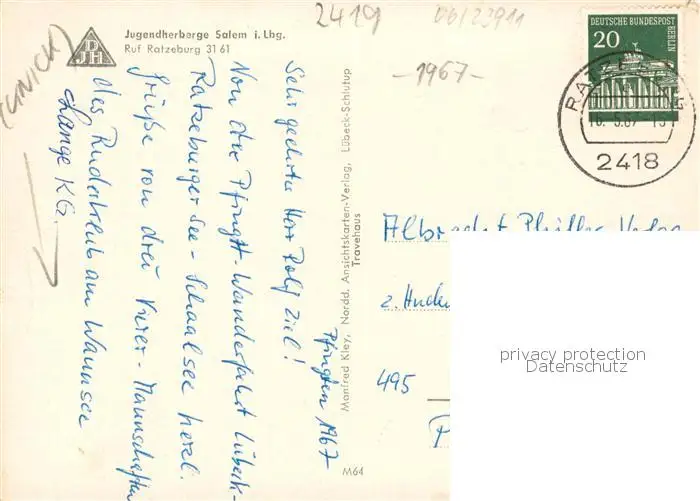 2419
06/23911
Jugendherberge Salem i. Lbg.
Ruf Ratzeburg 31 61
DJH
-1967-
DEUTSCHE BUNDESPOST
BERLIN
20
2418
Pfingsten 1967
Sehr geehrter Herr Rolf Ziel!
Von der Pfingst-Wanderfahrt Lübeck-
Ratzeburger See - Schaalsee herzl.
Grüße von drei Vierer-Mannschaften
des Ruderklub am Wannsee
Lange KG.
Manfred Kley, Nordd. Ansichtskarten-Verlag, Lübeck-Schlutup
Travehaus
M64
Albrecht
z. Huden
495
privacy protection
Datenschutz